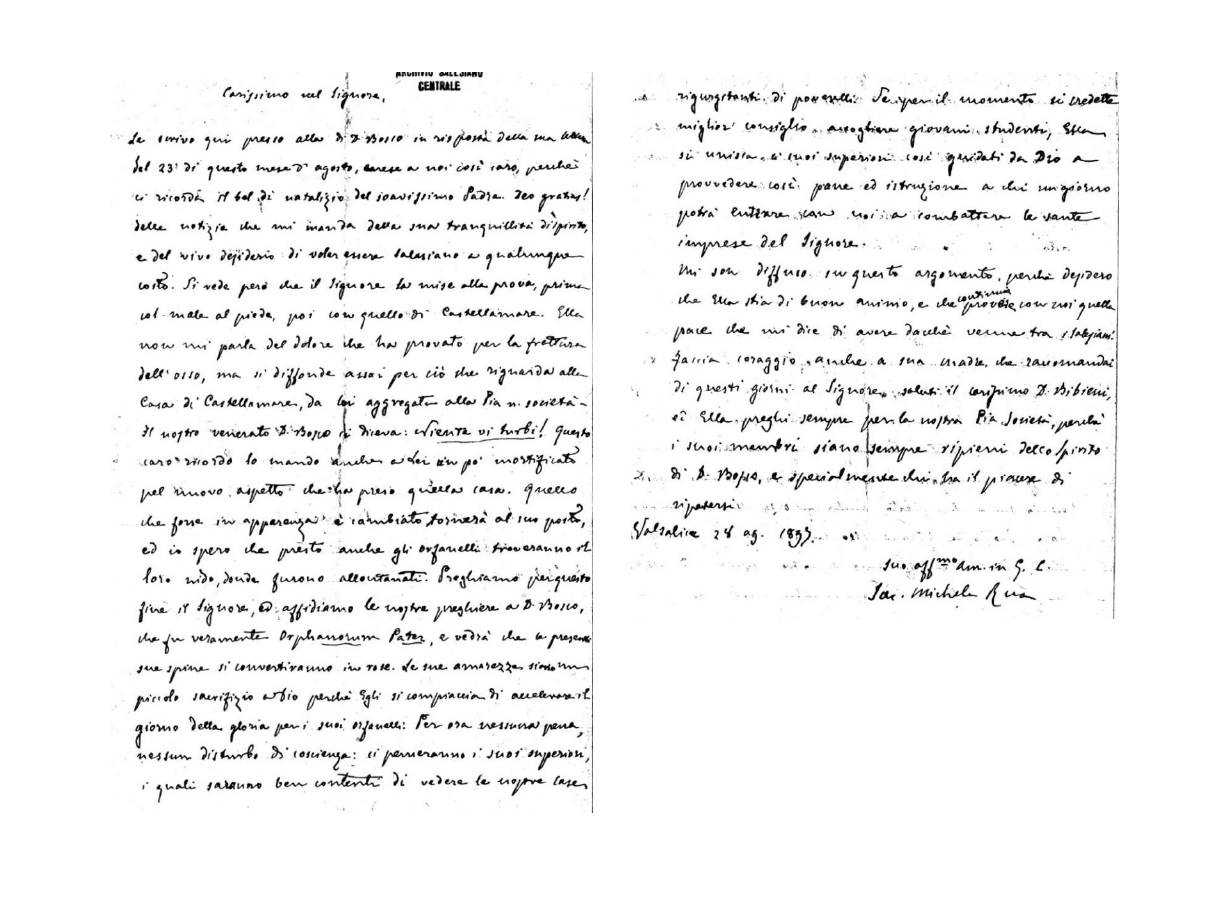 ARCHIVIO SALESIANO
CENTRALE
Carissimo nel Signore,
Le scrivo qui presso alla di D. Bosco in risposta della sua
del 23 di questo mese d'agosto, mese a noi così caro, perchè
ci ricorda il bel dì natalizio del soavissimo Padre. Deo gratias!
delle notizie che mi manda della sua tranquillità di spirito,
e del vivo desiderio di voler essere salesiano a qualunque
costo. Si vede però che il Signore la mise alla prova, prima
col male al piede, poi con quello di Castellamare. Ella
non mi parla del dolore che ha provato per la frattura
dell'osso, ma si diffonde assai per ciò che riguarda alla
Casa di Castellamare, da lei aggregata alla Pia n. società.
Il nostro venerato D. Bosco ci diceva: Niente vi turbi! Questo
caro ricordo lo mando anche a Lei un po' mortificato
pel nuovo aspetto che ha preso quella casa. Quello
che forse in apparenza è cambiato, tornerà al suo posto,
ed io spero che presto anche gli orfanelli troveranno il
loro nido, donde furono allontanati. Preghiamo per questo
fine il Signore, ed affidiamo le nostre preghiere a D. Bosco,
che fu veramente Orphanorum Pater, e vedrà che le presenti
sue spine si convertiranno in rose. Le sue amarezze siano un
piccolo sacrifizio a Dio perchè Egli si compiaccia di accelerare il
giorno della gloria per i suoi orfanelli. Per ora nessuna pena,
nessun disturbo di coscienza: ci penseranno i suoi superiori,
i quali saranno ben contenti di vedere le nostre case
rigurgitanti di poverelli. Se per il momento si credette
miglior consiglio accogliere giovani studenti, Ella
si unisca a' suoi superiori così guidati da Dio a
provvedere così pane ed istruzione a chi un giorno
potrà entrare con noi a combattere le sante
imprese del Signore.
Mi son diffuso su questo argomento, perchè desidero
che Ella stia di buon animo, e che continui con noi quella
pace che mi dice di avere dacchè venne tra i Salesiani.
Faccia coraggio anche a sua madre, che raccomandai
di questi giorni al Signore, saluti il carissimo D. Bibieni,
ed Ella preghi sempre per la nostra Pia Società, perchè
i suoi membri siano sempre ripieni dello spirito
di D. Bosco, e specialmente chi ha il piacere di
ripetersi
Valsalice 28 ag. 1893
Suo aff.mo am. in G. C.
Sac. Michele Rua